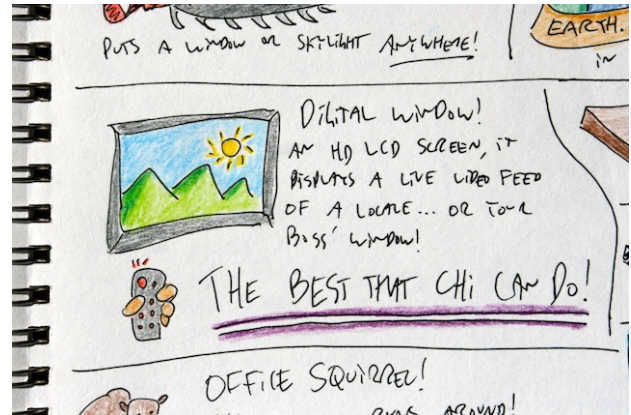 PUTS A WINDOW OR SKYLIGHT ANYWHERE!
EARTH.
in
DIGITAL WINDOW!
AN HD LCD SCREEN, IT
DISPLAYS A LIVE VIDEO FEED
OF A LOCALE... OR YOUR
BOSS' WINDOW!
THE BEST THAT CHI CAN DO!
OFFICE SQUIRREL!
RUNS AROUND!